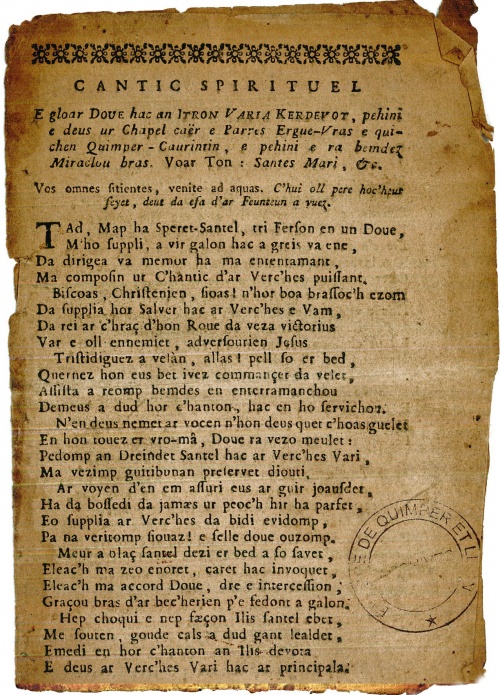 CANTIC SPIRITUEL
E gloar DOUE hac an ITRON VARIA KERDEVOT, pehini
e deus ur Chapel caër e Parres Ergue-Vras e qui-
chen Quimper-Caurintin, e pehini e ra bemdez
Miraclou bras. Voar Ton : Santes Mari, &c.
Vos omnes sitientes, venite ad aquas. C'hui oll pere hoc'heus
seyet, deut da efa d'ar Feunteun a vuez.
TAd, Map ha Speret-Santel, tri Ferson en un Doue,
M'ho suppli, a vir galon hac a greis va ene,
Da dirigea va memor ha ma ententamant,
Ma composin ur C'hantic d'ar Verc'hes puissant.
Biscoas, Christenien, sioas! n'hor boa brassoc'h ezom
Da supplia hor Salver hac ar Verc'hes e Vam,
Da rei ar c'hraç d'hon Roue da veza victorius
Var e oll ennemiet, adversourien Jesus
Tristidiguez a velàn, allas! pell so er bed,
Quernez hon eus bet ivez commançet da velet,
Assista a reomp bemdes en enterramanchou
Demeus a dud hor c'hanton, hac en ho servichou.
N'en deus nemet ar vocen n'hon deus quet c'hoas guelet
En hon touez er vro-mâ, Doue ra vezo meulet:
Pedomp an Dreindet Santel hac ar Verc'hes Vari,
Ma vezimp guitibunan preservet diouti.
Ar voyen d'en em assuri eus ar guir joausdet,
Ha da bossedi da jamæs ur peoc'h hir ha parfet,
Eo supplia ar Verc'hes da bidi evidomp,
Pa na veritomp siouaz! e selle doue ouzomp.
Meur a blaç santel dezi er bed a so savet,
Eleac'h ma zeo enoret, caret hac invoquet,
Eleac'h ma accord Doue, dre e intercession,
Graçou bras d'ar bec'herien p'e fedont a galon.
Hep choqui e nep fæçon Ilis santel ebet,
Me souten, goude cals a dud gant lealdet,
Emedi en hor c'hanton an Ilis devota
E deus ar Verc'hes Vari hac ar principala.
DE QUIMPER ET